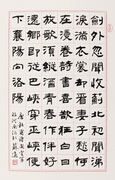 劍外忽聞收薊北初聞涕
淚滿衣裳卻看妻子愁何
在漫卷詩書喜欲狂白日
放歌須縱酒青春作伴好
還鄉即從巴峽穿巫峽便
下襄陽向洛陽